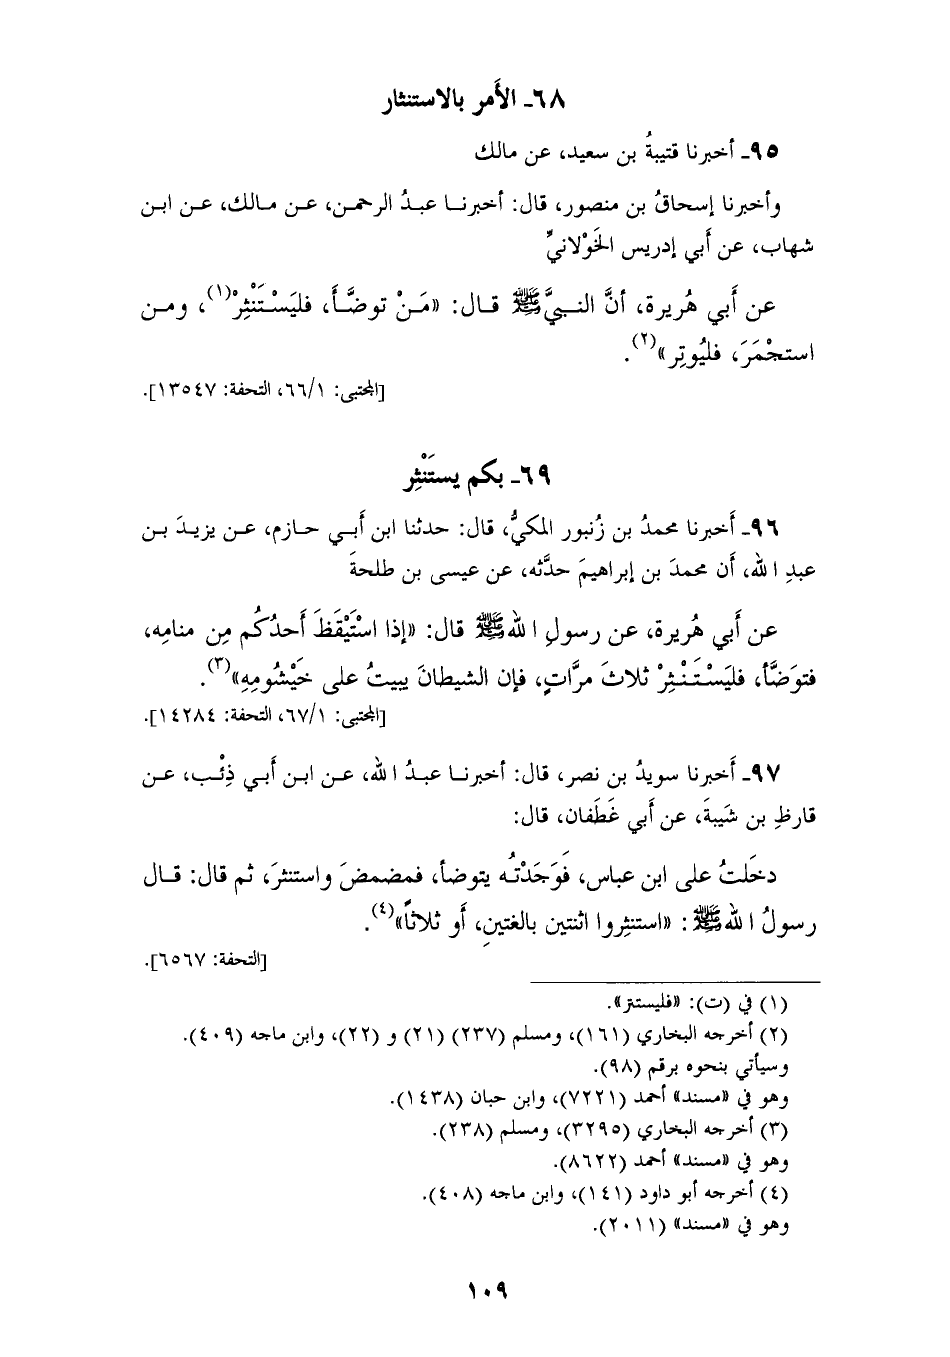 ٦٨ـ الأَمر بالاستنثار
٩٥ـ أخبرنا قتيبةُ بن سعيد، عن مالك
وأخبرنا إسحاقُ بن منصور، قال: أخبرنا عبدُ الرحمن، عن مالك، عن ابن
شهاب، عن أَبي إدريس الخَوْلانيِّ
عن أَبي هُريرة، أنَّ النبيَّ ﷺ قال: «مَنْ توضَّأَ، فليَسْتَنْثِرْ(١)، ومن
استجْمَرَ، فليُوتِر»(٢).
[المجتبى: ٦٦/١، التحفة: ١٣٥٤٧].
٦٩ـ بكم يستَنْثِر
٩٦ـ أَخبرنا محمدُ بن زُنبور المكيُّ، قال: حدثنا ابن أَبي حازم، عن يزيدَ بن
عبدِ الله، أَن محمدَ بن إبراهيمَ حدَّثه، عن عيسى بن طلحةَ
عن أَبي هريرة، عن رسولِ الله ﷺ قال: «إذا اسْتَيْقَظَ أَحدُكُم مِن منامِه،
فتوَضَّأ، فليَسْتَنْثِرْ ثلاثَ مرَّاتٍ، فإن الشيطانَ يبيتُ على خَيْشُومِهِ»(٣).
[المجتبى: ٦٧/١، التحفة: ١٤٢٨٤].
٩٧ـ أَخبرنا سويدُ بن نصر، قال: أخبرنا عبدُ الله، عن ابن أَبي ذِئْب، عن
قارظِ بن شَيبةَ، عن أَبي غَطَفان، قال:
دخَلتُ على ابن عباس، فَوَجَدْتُه يتوضأ، فمضمضَ واستنثرَ، ثم قال: قال
رسولُ الله ﷺ: «استنثِروا اثنتين بالغتينِ، أَو ثلاثاً»(٤).
[التحفة: ٦٥٦٧].
(١) في (ت): «فليستنتر».
(٢) أخرجه البخاري (١٦١)، ومسلم (٢٣٧) (٢١) و (٢٢)، وابن ماجه (٤٠٩).
وسيأتي بنحوه برقم (٩٨).
وهو في «مسند» أحمد (٧٢٢١)، وابن حبان (١٤٣٨).
(٣) أخرجه البخاري (٣٢٩٥)، ومسلم (٢٣٨).
وهو في «مسند» أحمد (٨٦٢٢).
(٤) أخرجه أبو داود (١٤١)، وابن ماجه (٤٠٨).
وهو في «مسند» (٢٠١١).
١٠٩